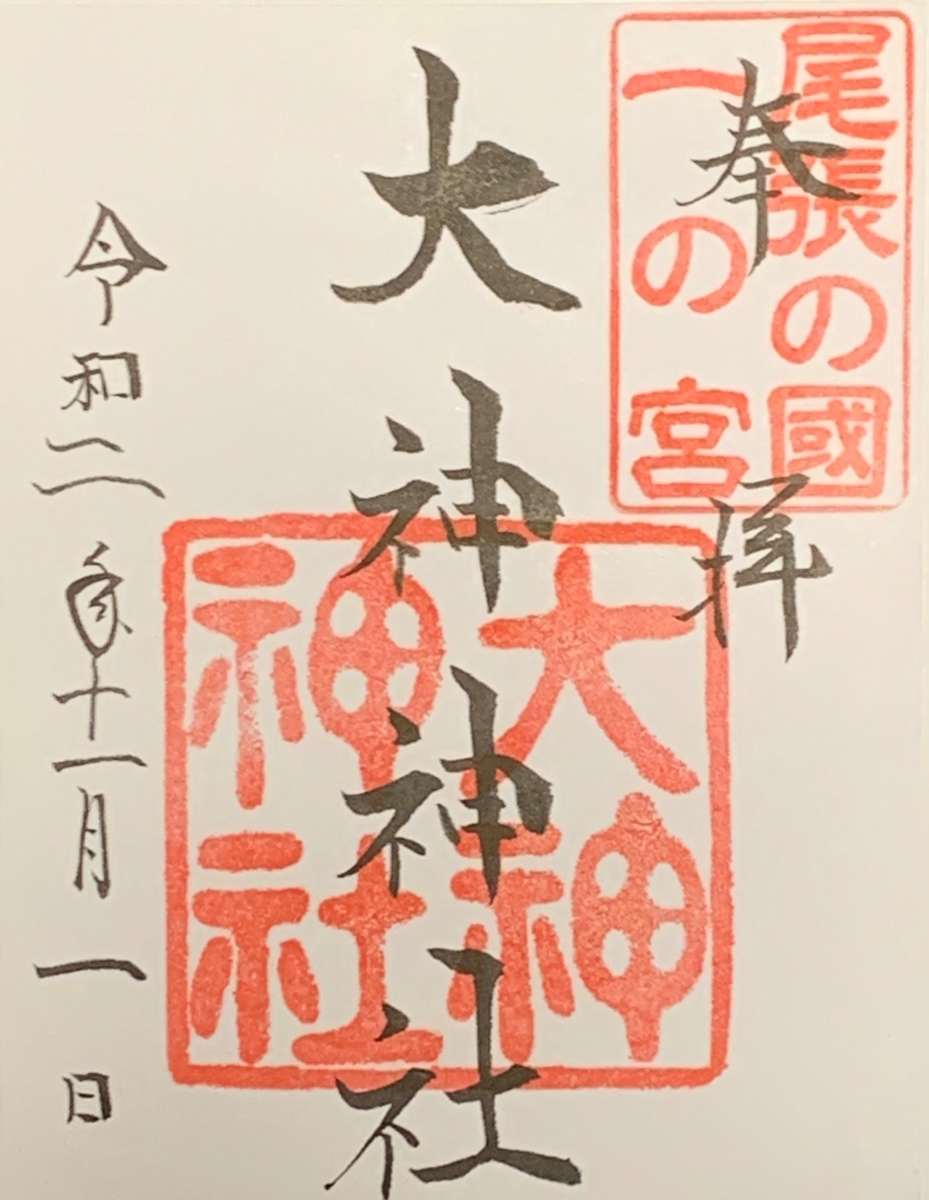 尾張の國
一の宮
奉拝
大神神社
大神
神社
令和二年十一月一日